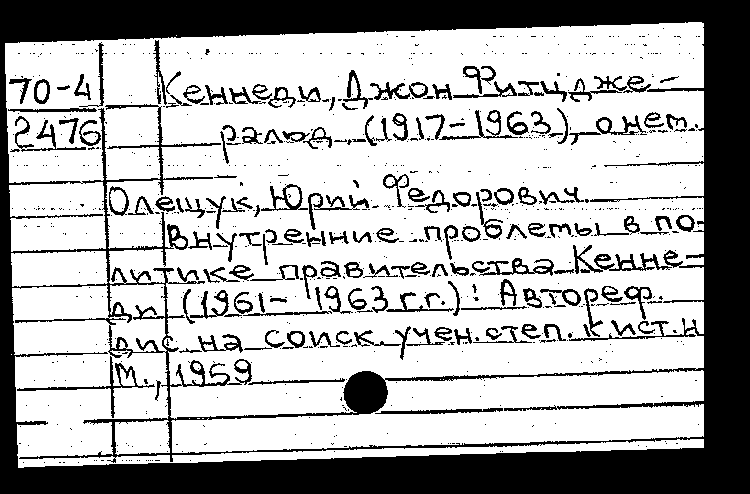 70-4 Кеннеди, Джон Фитцдже-
2476 ралюд (1917-1963), о нем.
Олещук, Юрий Федорович
Внутренние проблемы в по-
литике правительства Кенне-
ди (1961- 1963 г.г.): Автореф.
дис. на соиск. учен. степ. к.ист.н
М., 1959